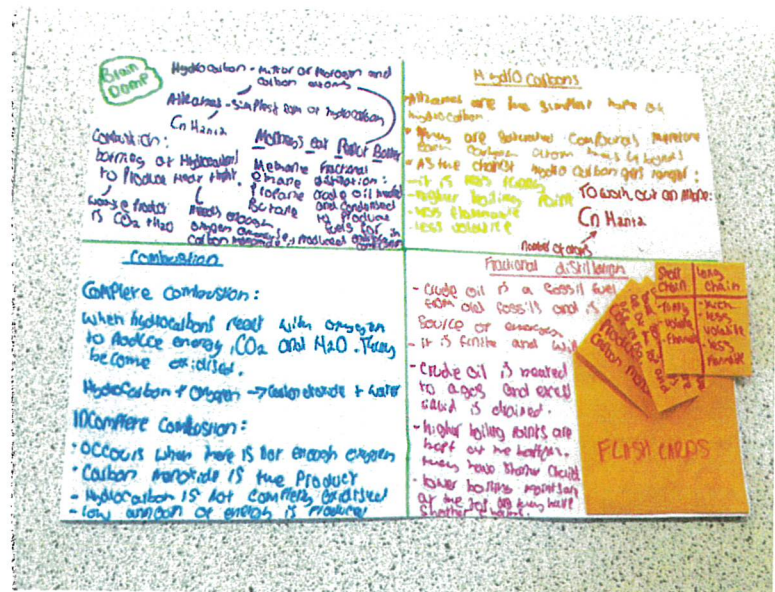 Brain
Dump
Hydrocarbon - mixture of hydrogen and
carbon atoms
Alkanes - simplest form of hydrocarbon
Cn H2n+2
Combustion:
burning of Hydrocarbons
to Produce Heat + light.
waste Product
is CO2 + H2O
Needs enough
oxygen
Monkeys eat Peanut Butter
Methane
Ethane
Propane
Butane
Fractional
distillation:
crude oil heated
and condensed
to produce
fuels for
Hydrocarbons
Alkanes are the simplest type of
hydrocarbon.
They are saturated compounds therefore
each carbon atom has 4 bonds
- As the chain of Hydrocarbon gets longer:
- it is less runny
- higher boiling point
- less flammable
- less volatile
To work out an alkane:
Cn H2n+2
number of
Combustion
Complete combustion:
when hydrocarbons react with oxygen
to Produce energy, CO2 and H2O. They
become oxidised.
Hydrocarbon + Oxygen → carbon dioxide + water
Incomplete Combustion:
· Occurs when there is not enough oxygen
· Carbon monoxide is the Product
- Hydrocarbon is not completely oxidised
- low amount of energy is produced
Fractional distillation
- crude oil is a fossil fuel
from old fossils and is
source of energy
- it is finite and will
- Crude oil is heated
to a gas and excess
liquid is drained.
- higher boiling points are
at the bottom.
they have
- lower boiling points are
at the top, as they have
shorter chains.
Short
chain
long
chain
- runny
- volatile
- thick
- less
volatile
- less
Produces
Carbon
FLASH CARDS